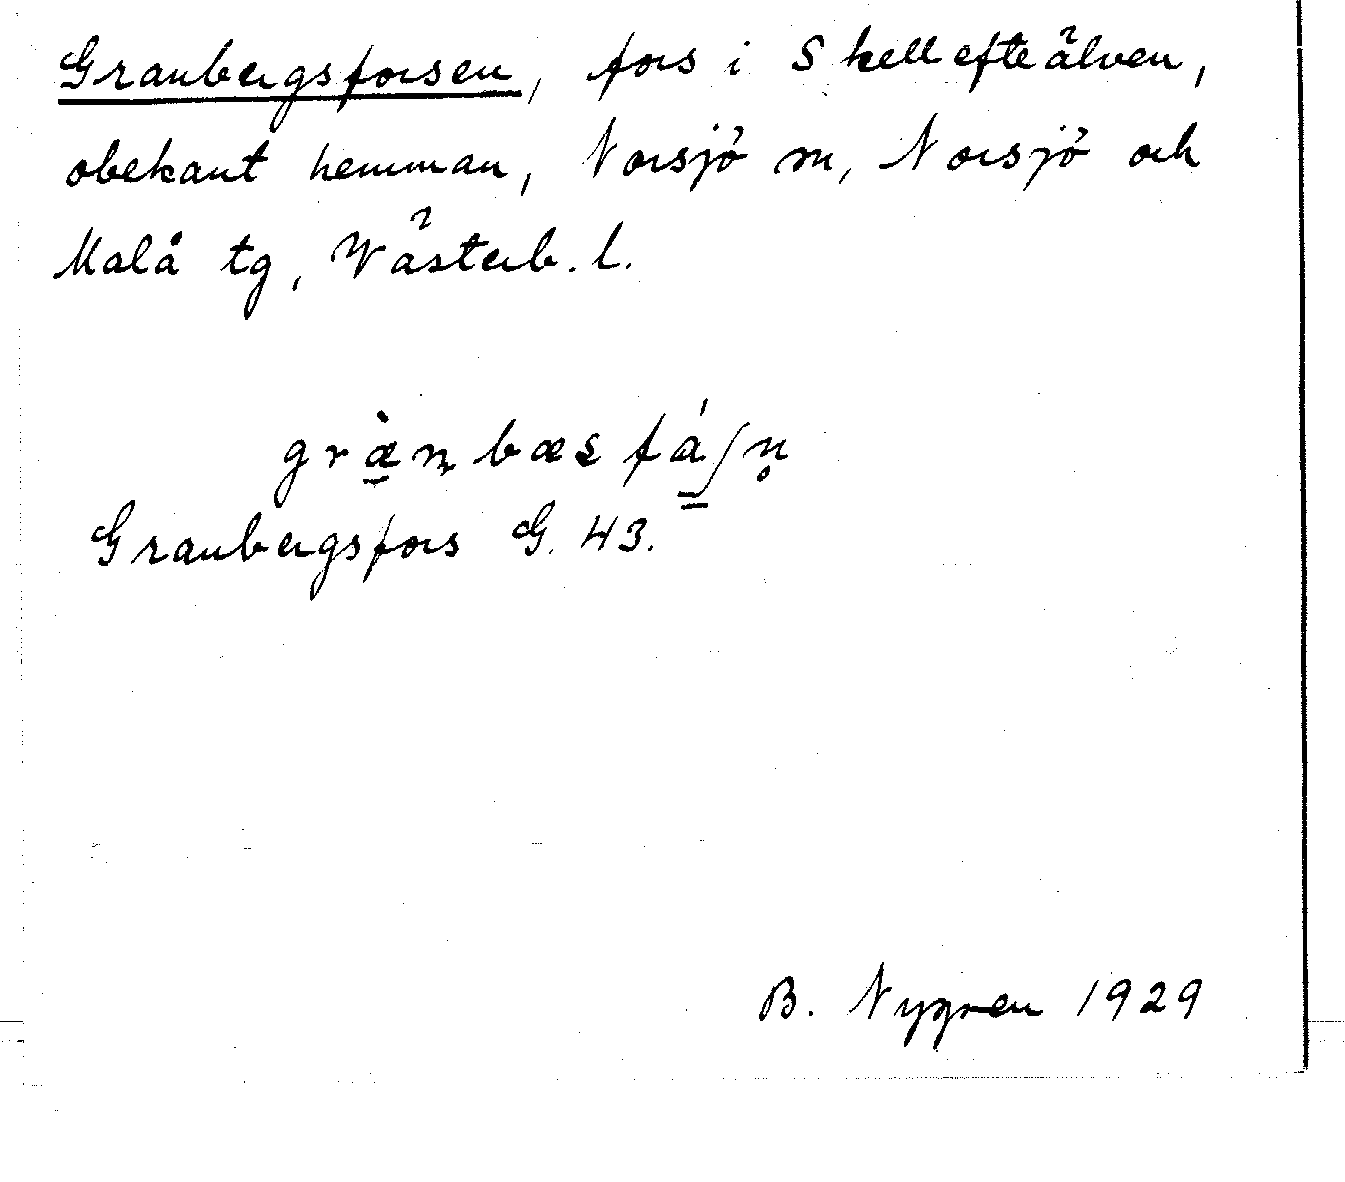 Granbergsforsen, fors i Skellefteälven,
obekant hemman, Norsjö sn, Norsjö och
Malå tg, Västerb. l.
græ̀nbæsfá̳ʃn̥
Granbergsfors G. 43.
B. Nygren 1929